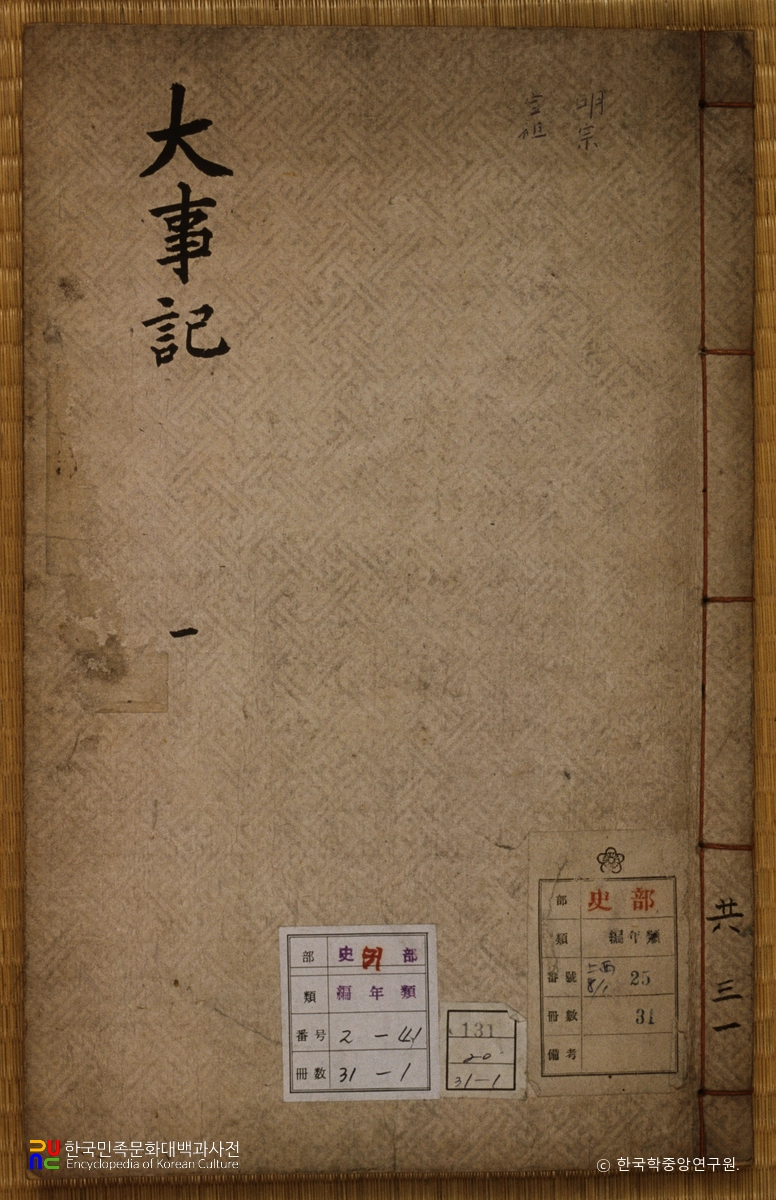 大事記
一
明宗
宣祖
共三一
部 史 部
類 編年類
番号 2-41
冊数 31-1
131
20
31-1
部 史部
類 編年類
番號 25
冊數 31
備考
한국민족문화대백과사전
Encyclopedia of Korean Culture
© 한국학중앙연구원.